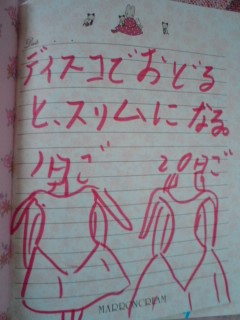 ディスコでおどる
と、スリムになる。
1日ご
20日ご
MARRONCREAM